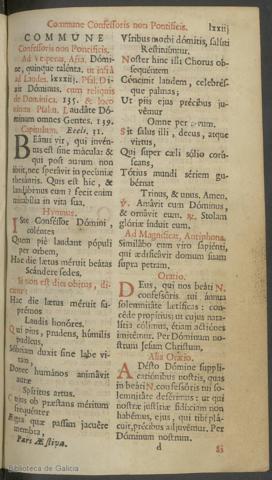 Commune Confessoris non Pontificis. lxxiij
COMMUNE
Confessoris non Pontificis.
Ad Vesperas, Aña. Dómi-
ne, quinque talénta. ut infrà
ad Laudes. lxxxiij. Psal. Di-
xit Dóminus. cum reliquis
de Dominica. 135. & loco
ultimi Psalm. Laudáte Dó-
minum omnes Gentes. 139.
Capitulum. Eccli. 31.
BEátus vir, qui invén-
tus est sine mácula: &
qui post aurum non
ábiit, nec sperávit in pecúniæ
thesáuris. Quis est hic, &
laudábimus eum? fecit enim
mirabília in vita sua.
Hymnus.
ISte Conféssor Dómini,
coléntes
Quem piè laudant pópuli
per orbem,
Hac die lætus méruit beátas
Scándere sedes.
Si non est dies obitus, di-
citur:
Hac die lætus méruit su-
prémos
Laudis honóres.
Qui pius, prudens, húmilis
pudícus,
Sóbriam duxit sine labe vi-
tam,
Donec humános animávit
auræ
Spíritus artus.
Cujus ob præstans méritum
frequénter
Ægra quæ passim jacuére
membra
Pars Æstiva.
Víribus morbi dómitis, salúti
Restituúntur.
Noster hinc illi Chorus ob-
sequéntem
Cóncinit laudem, celebrés-
que palmas;
Ut piis ejus précibus ju-
vémur
Omne per ævum.
Sit salus illi, decus, atque
virtus,
Qui super cæli sólio corús-
cans,
Tótius mundi sériem gu-
bérnat
Trinus, & unus. Amen.
℣. Amávit eum Dóminus,
& ornávit eum. ℟. Stolam
glóriæ índuit eum.
Ad Magnificat, Antiphona.
Similábo eum viro sapiénti,
qui ædificávit domum suam
supra petram.
Oratio.
DEus, qui nos beáti N.
confessóris tui ánnua
solemnitáte lætíficas: con-
céde propítius; ut cujus nata-
lítia cólimus, étiam actiónes
imitémur. Per Dóminum no-
strum Jesum Christum,
Alia Oratio.
ADésto Dómine suppli-
catiónibus nostris, quas
in beáti N. confessóris tui so-
lemnitáte deférimus: ut qui
nostræ justítiæ fidúciam non
habémus, ejus, qui tibi plá-
cuit, précibus adjuvémur. Per
Dóminum.
d
Biblioteca de Galicia